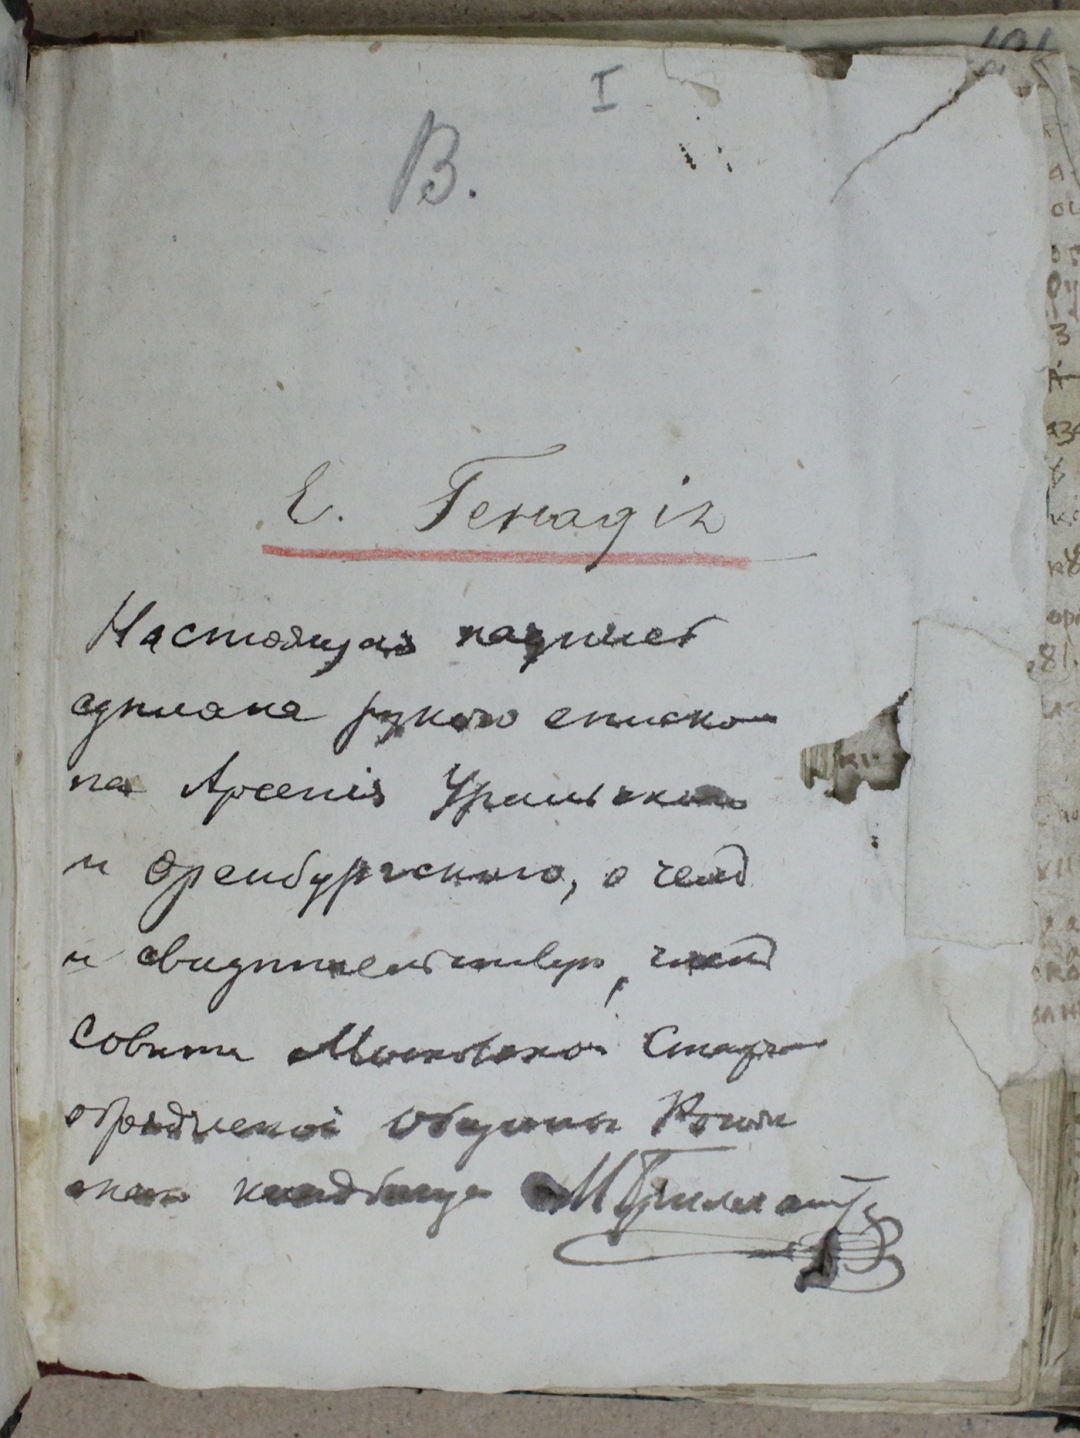 I
В.
Е. Генадія
Настоящая надпись
сдѣлана рукою еписко
па Арсенія Уральскаго
и Оренбургскаго, о чемъ
и свидѣтельствую, членъ
Совѣта Московской Старо
обрядческой Общины Рогож
скаго кладбища М Бриллиантовъ